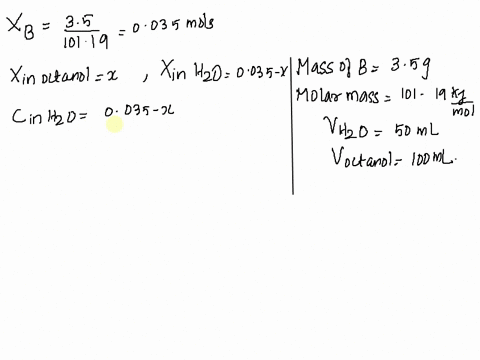 X_B = 3.5/101.19 = 0.035 mols
X in octanol = x , X in H2O = 0.035-x
C in H2O = 0.035-x
Mass of B = 3.5g
Molar mass = 101.19 kg/mol
V_H2O = 50 mL
V_octanol = 100 mL.